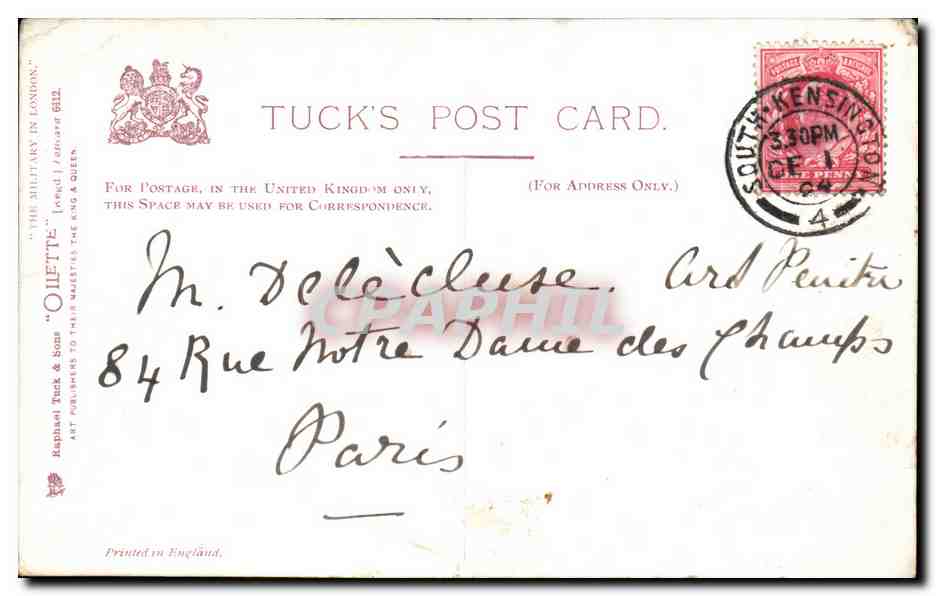 TUCK'S POST CARD.
FOR POSTAGE, IN THE UNITED KINGDOM ONLY,
THIS SPACE MAY BE USED FOR CORRESPONDENCE.
(FOR ADDRESS ONLY.)
POSTAGE REVENUE
ONE PENNY
SOUTH·KENSINGTON
3.30PM
DE 1
04
4
M. Delècluse. Art Peintre
84 Rue Notre Dame des Champs
Paris
CPAPHIL
"THE MILITARY IN LONDON."
Raphael Tuck & Sons "OILETTE" [Regd.] Postcard 6612.
ART PUBLISHERS TO THEIR MAJESTIES THE KING & QUEEN
Printed in England.